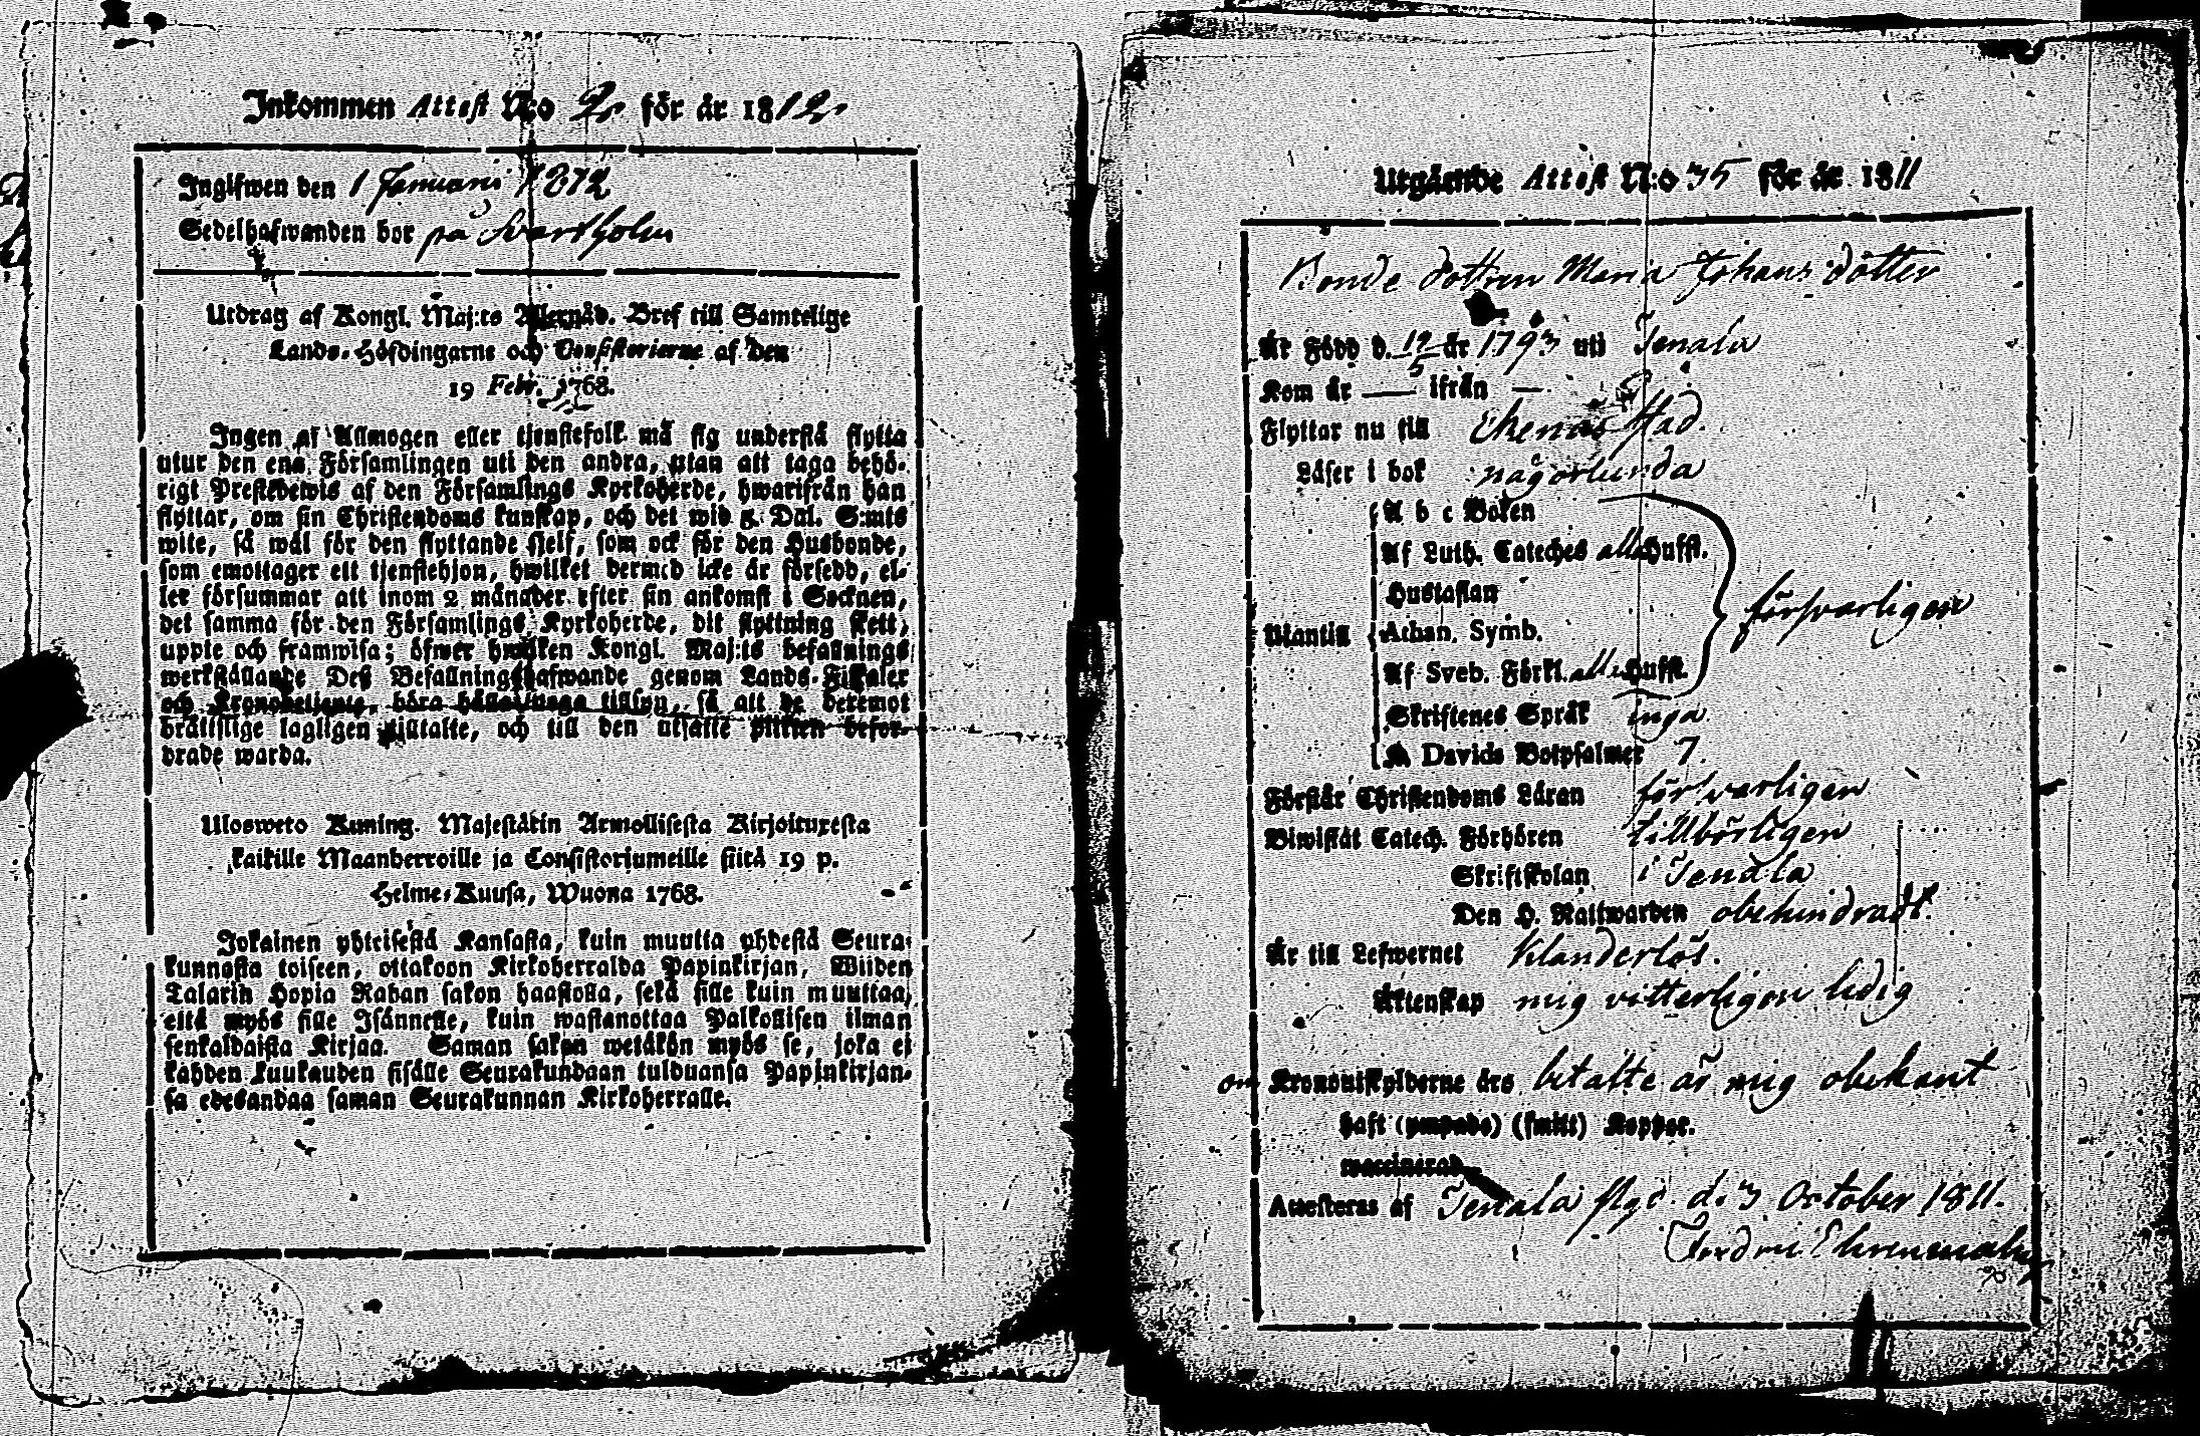 Inkommen Attest N:o 2 för år 1812
Ingifwen den 1 Januarii 1812
Sedelhafwanden bor på Svartholm
Utdrag af Kongl. Maj:ts Allernåd. Bref till Samtelige
Lands-Höfdingarne och Consistorierne af den
19 Febr. 1768.
Ingen af Allmogen eller tjenstefolk må sig understå flytta
utur den ena Församlingen uti den andra, utan att taga behö-
rigt Prestebewis af den Församlings Kyrkoherde, hwarifrån han
flyttar, om sin Christendoms kunskap, och det wid 5 Dal. S:mts
wite, så wäl för den flyttande sjelf, som ock för den Husbonde,
som emottager ett tjenstehjon, hwilket dermed icke är försedd, el-
ler försummar att inom 2 månader efter sin ankomst i Socknen,
det samma för den Församlings Kyrkoherde, dit flyttning skett,
uppte och framwisa; öfwer hwilken Kongl. Maj:ts befallnings
werkställande Des Befallningshafwande genom Lands-Fiskaler
och Kronobetjente, böra hålla noga tillsyn, så att de deremot
brättslige lagligen tilltalte, och till den utsatte plikten befor-
drade warda.
Ulosweto Kuning. Majestätin Armollisesta Kirjoituxesta
kaikille Maanherroille ja Consistoriumeille siitä 19 p.
Helme-Kuusa, Wuona 1768.
Jokainen yhteisestä Kansasta, kuin muutta yhdestä Seura-
kunnasta toiseen, ottakoon Kirkoherralda Papinkirjan, Wiiden
Talarin Hopia Rahan sakon haastolla, sekä sille kuin muuttaa,
että myös sille Isännelle, kuin wastanottaa Palkollisen ilman
senkaldaista Kirjaa. Saman sakon wetäkön myös se, joka ei
kahden kuukauden sisälle Seurakundaan tulduansa Papinkirjan-
sa edesandaa saman Seurakunnan Kirkoherralle.
Utgående Attest N:o 35 för år 1811
Bonde dottren Maria Johans dotter
År Född d. 12/5 år 1793 uti Tenala
Kom år — ifrån —
Flyttar nu till Ekenäs stad.
Läser i bok någorlunda
A b c Boken
Af Luth. Cateches alla Hufst.
Hustaflan
Utantill Athan. Symb. försvarligen
Af Sveb. Förkl. alla Hufst.
Skriftenes Språk inga
Davids Botpsalmer 7.
Förstår Christendoms Läran försvarligen
Biwistat Catech. Förhören tillbörligen
Skriftskolan i Tenala
Den H. Nattwarden obehindradt.
Är till Lefwernet Klanderlös.
Äktenskap mig vitterligen ledig
om Kronoutskylderne äro betalte är mig obekant
haft (ympade) (smitt) Koppor.
waccinerad
Attesteras af Tenala Pgd. d. 3 October 1811.